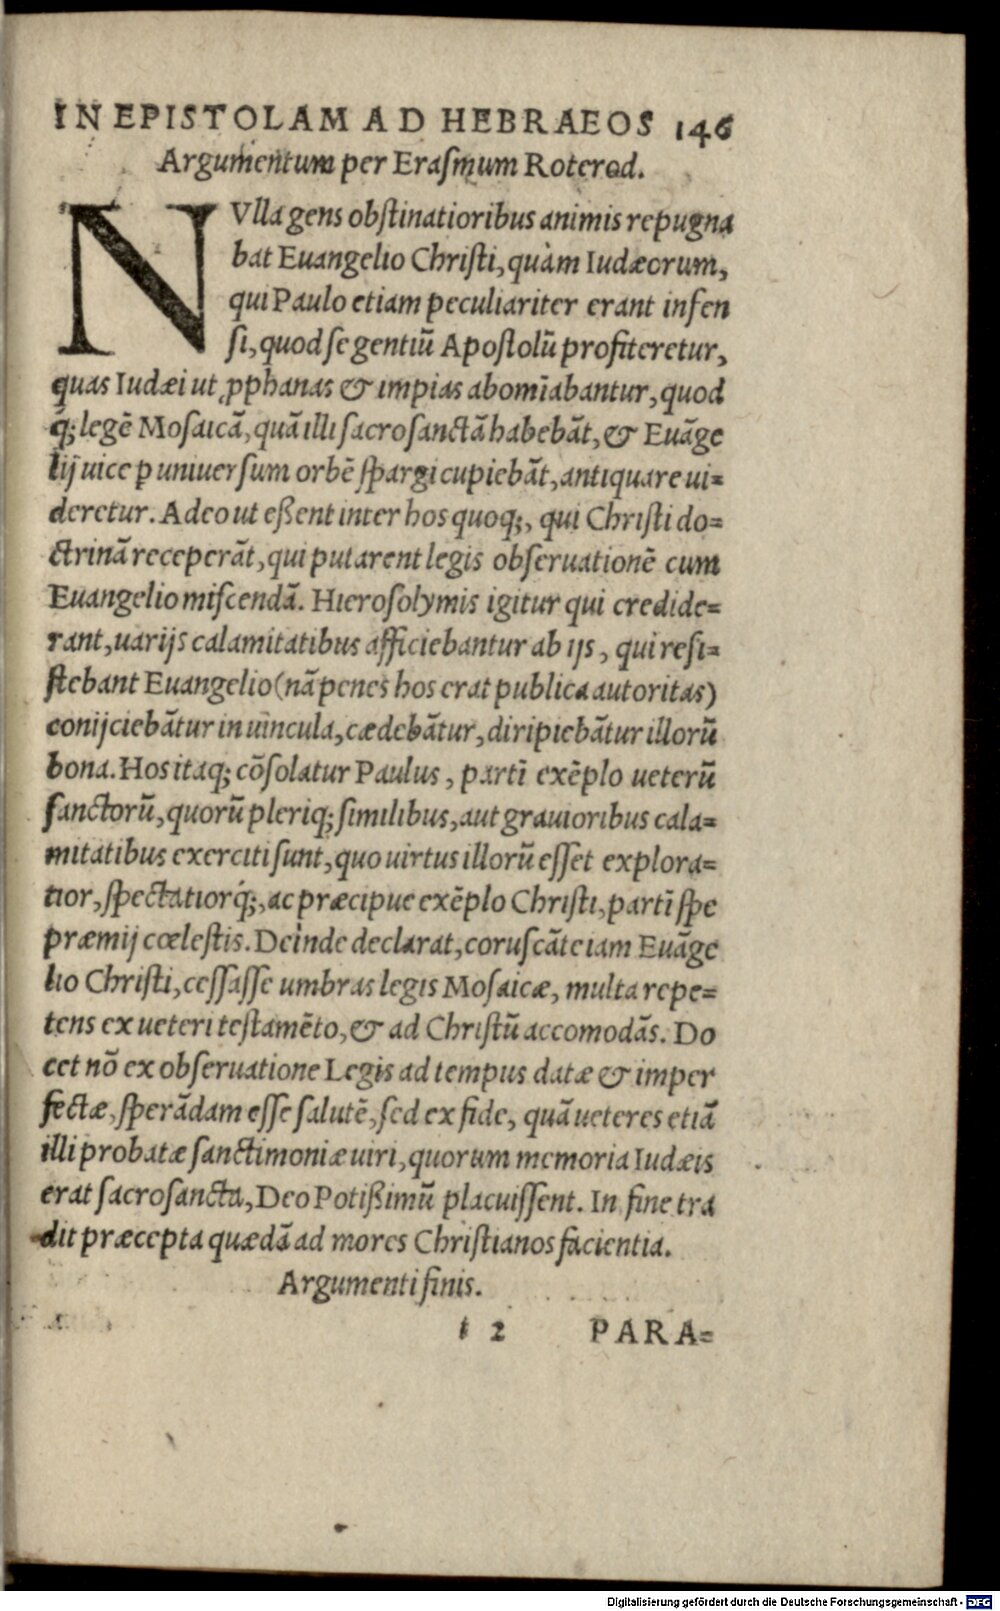 IN EPISTOLAM AD HEBRAEOS 146
Argumentum per Erasmum Roterod.
NVlla gens obstinatioribus animis repugna
bat Euangelio Christi, quàm Iudæorum,
qui Paulo etiam peculiariter erant infen
si, quod se gentiũ Apostolũ profiteretur,
quas Iudæi ut ꝓphanas & impias abomĩabantur, quod
q́; legẽ Mosaicã, quã illi sacrosanctã habebãt, & Euãge
lij uice p uniuersum orbẽ spargi cupiebãt, antiquare ui=
deretur. Adeo ut eßent inter hos quoq;, qui Christi do=
ctrinã receperãt, qui putarent legis obseruationẽ cum
Euangelio miscendã. Hierosolymis igitur qui credide=
rant, uarijs calamitatibus afficiebantur ab ijs, qui resi=
stebant Euangelio (nã penes hos erat publica autoritas)
conijciebãtur in uincula, cædebãtur, diripiebãtur illorũ
bona. Hos itaq; cõsolatur Paulus, partĩ exẽplo ueterũ
sanctorũ, quorũ pleriq; similibus, aut grauioribus cala=
mitatibus exerciti sunt, quo uirtus illorũ esset explora=
tior, spectatiorq́;, ac præcipue exẽplo Christi, partĩ spe
præmij cœlestis. Deinde declarat, coruscãte iam Euãge
lio Christi, cessasse umbras legis Mosaicæ, multa repe=
tens ex ueteri testamẽto, & ad Christũ accomodãs. Do
cet nõ ex obseruatione Legis ad tempus datæ & imper
fectæ, sperãdam esse salutẽ, sed ex fide, quã ueteres etiã
illi probatæ sanctimoniæ uiri, quorum memoria Iudæis
erat sacrosancta, Deo Potißimũ placuissent. In fine tra
dit præcepta quædã ad mores Christianos facientia.
Argumenti finis.
t 2 PARA=
Digitalisierung gefördert durch die Deutsche Forschungsgemeinschaft - DFG